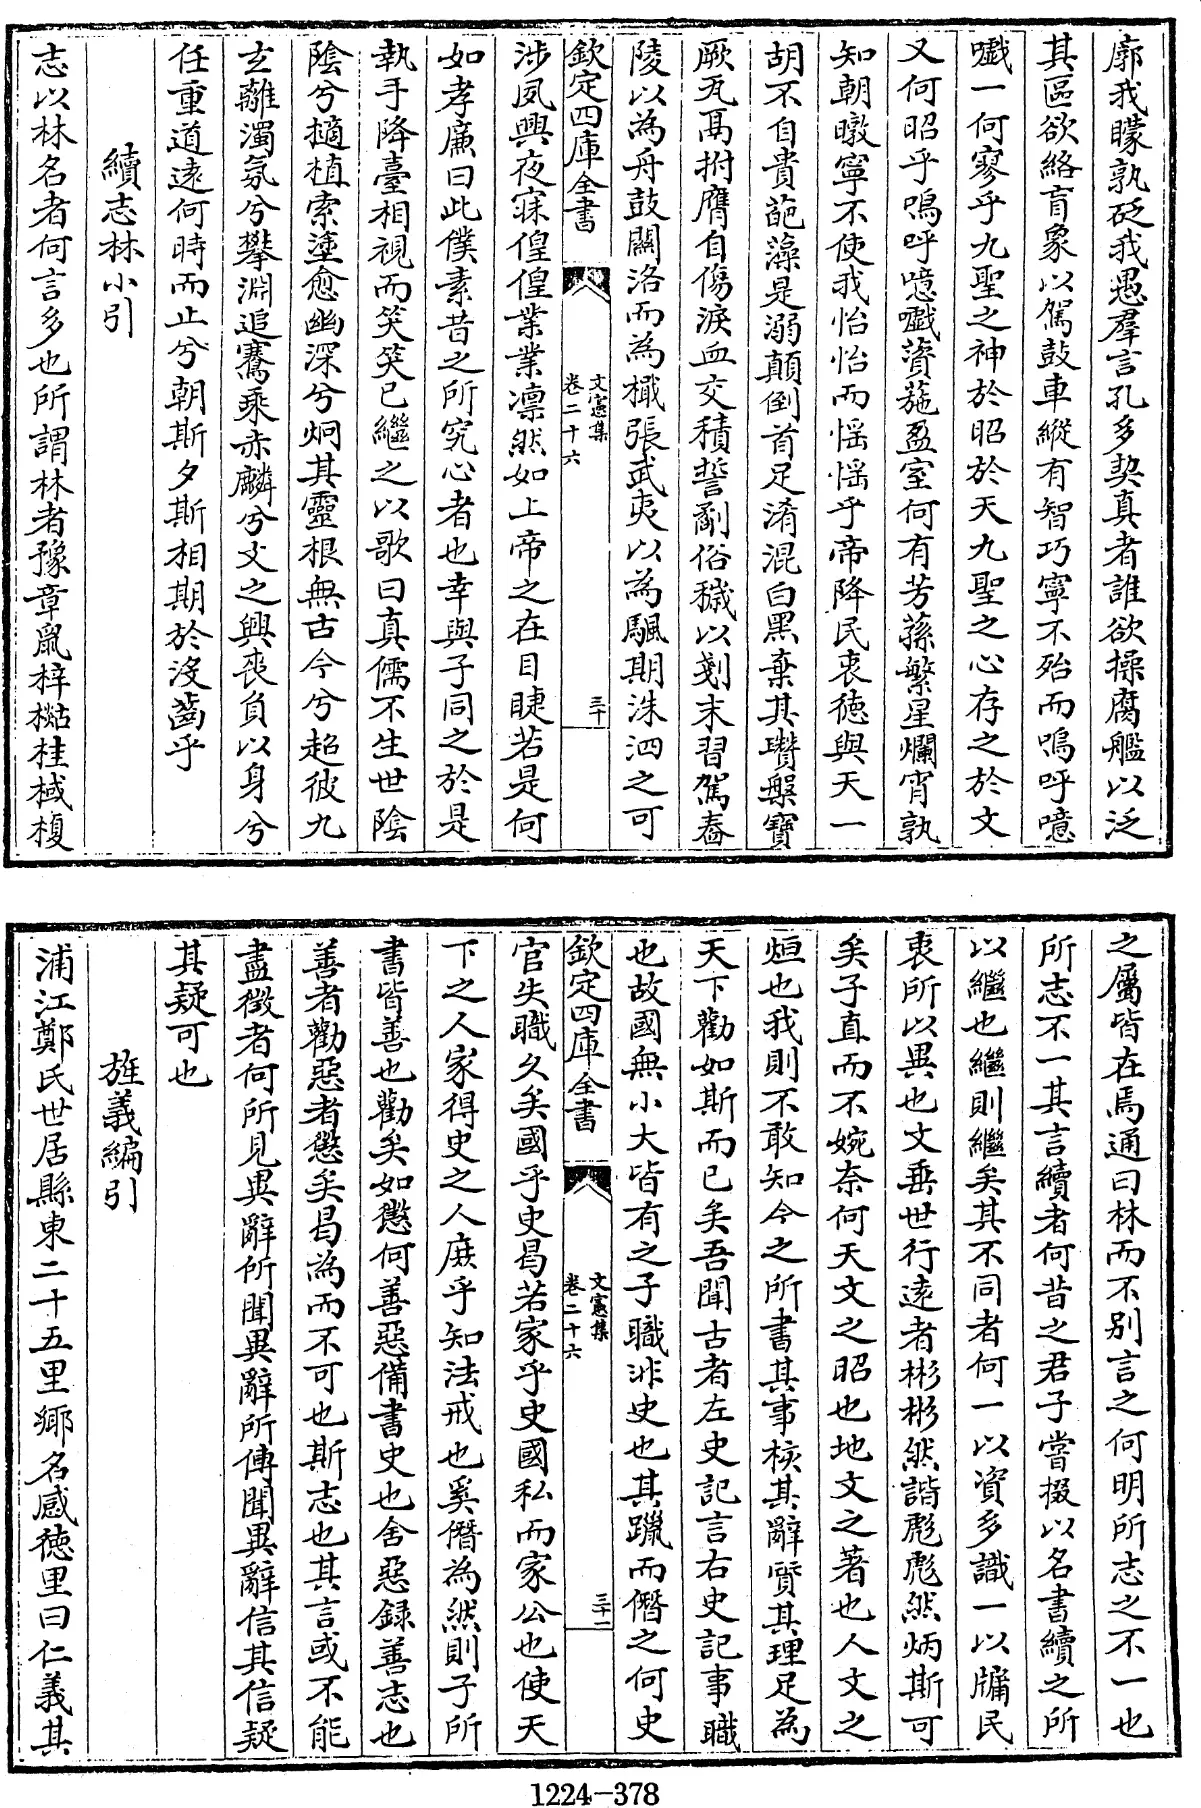 廓我矇孰砭我愚羣言孔多契真者誰欲操腐艦以泛
其區欲絡盲象以駕鼓車縱有智巧寧不殆而嗚呼噫
嚱一何寥乎九聖之神於昭於天九聖之心存之於文
又何昭乎嗚呼噫嚱薋葹盈室何有芳蓀繁星爛宵孰
知朝暾寧不使我怡怡而愮愮乎帝降民衷德與天一
胡不自貴葩藻是溺顛倒首足淆混白黑棄其瓚槃寶
厥瓦鬲拊膺自傷淚血交積誓劀俗穢以剗末習駕舂
陵以為舟鼓關洛而為檝張武夷以為颿期洙泗之可
欽定四庫全書
文憲集
卷二十六
三十
涉夙興夜寐偟偟業業凛然如上帝之在目睫若是何
如孝廉曰此僕素昔之所究心者也幸與子同之於是
執手降臺相視而笑笑已繼之以歌曰真儒不生世陰
陰兮擿植索塗愈幽深兮炯其靈根無古今兮超彼九
玄離濁氛兮攀淵追騫乘赤麟兮文之興喪負以身兮
任重道遠何時而止兮朝斯夕斯相期於沒齒乎
續志林小引
志以林名者何言多也所謂林者豫章鼠梓桂棫榎
之屬皆在焉通曰林而不别言之何明所志之不一也
所志不一其言續者何昔之君子嘗掇以名書續之所
以繼也繼則繼矣其不同者何一以資多識一以牖民
衷所以異也文垂世行逺者彬彬然諧彪彪然炳斯可
矣子直而不婉奈何天文之昭也地文之著也人文之
烜也我則不敢知今之所書其事核其辭質其理足為
天下勸如斯而已矣吾聞古者左史記言右史記事職
也故國無小大皆有之子職非史也其躐而僭之何史
欽定四庫全書
文憲集
卷二十六
三十一
官失職久矣國乎史曷若家乎史國私而家公也使天
下之人家得史之人庶乎知法戒也奚僭為然則子所
書皆善也勸矣如懲何善惡備書史也舍惡録善志也
善者勸惡者懲矣曷為而不可也斯志也其言或不能
盡徵者何所見異辭所聞異辭所傳聞異辭信其信疑
其疑可也
旌義編引
浦江鄭氏世居縣東二十五里鄉名感德里曰仁義其
1224-378